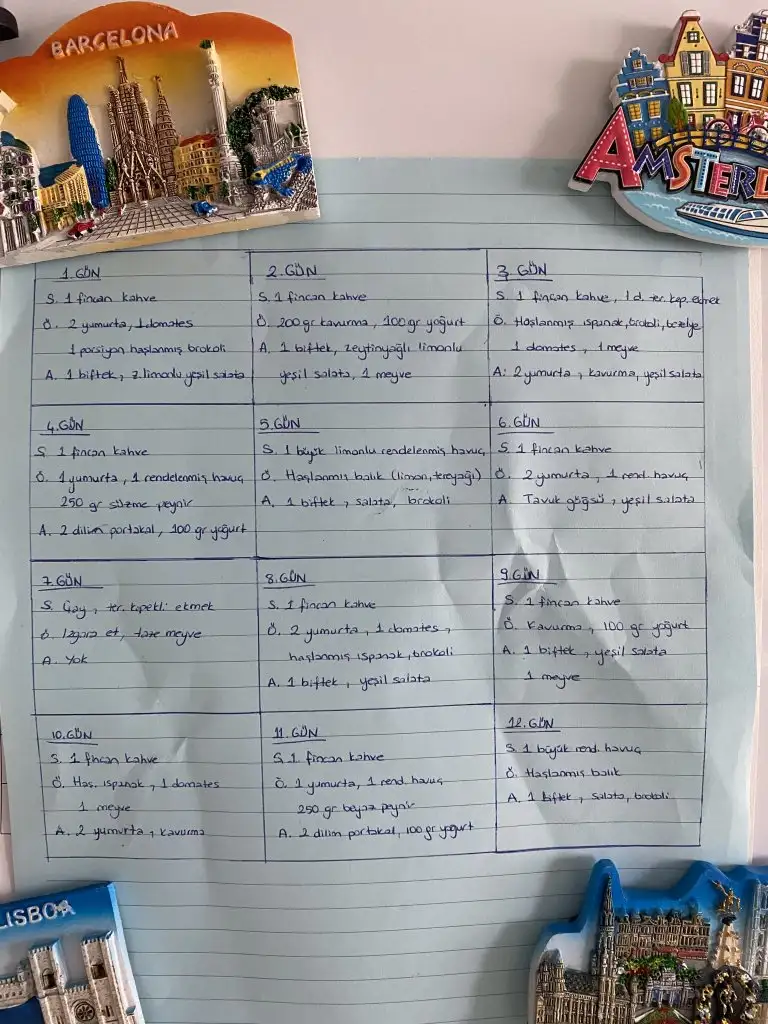 BARCELONA
AMSTERD
1.GÜN
S. 1 fincan kahve
Ö. 2 yumurta, 1 domates
1 porsiyon haşlanmış brokoli
A. 1 biftek, z.limonlu yeşil salata
2.GÜN
S. 1 fincan kahve
Ö. 200 gr kavurma, 100 gr yoğurt
A. 1 biftek, zeytinyağlı limonlu
yeşil salata, 1 meyve
3. GÜN
S. 1 fincan kahve, 1 d. ter. kep. ekmek
Ö. Haşlanmış ıspanak, brokoli, bezelye
1 domates, 1 meyve
A: 2 yumurta, kavurma, yeşil salata
4.GÜN
S. 1 fincan kahve
Ö. 1 yumurta, 1 rendelenmiş havuç
250 gr süzme peynir
A. 2 dilim portakal, 100 gr yoğurt
5.GÜN
S. 1 büyük limonlu rendelenmiş havuç
Ö. Haşlanmış balık (limon, tereyağı)
A. 1 biftek, salata, brokoli
6.GÜN
S. 1 fincan kahve
Ö. 2 yumurta, 1 rend. havuç
A. Tavuk göğsü, yeşil salata
7.GÜN
S. Çay, ter. kepekli ekmek
Ö. Izgara et, taze meyve
A. Yok
8.GÜN
S. 1 fincan kahve
Ö. 2 yumurta, 1 domates,
haşlanmış ıspanak, brokoli
A. 1 biftek, yeşil salata
9.GÜN
S. 1 fincan kahve
Ö. Kavurma, 100 gr yoğurt
A. 1 biftek, yeşil salata
1 meyve
10.GÜN
S. 1 fincan kahve
Ö. Haş. ıspanak, 1 domates
1 meyve
A. 2 yumurta, kavurma
11.GÜN
S. 1 fincan kahve
Ö. 1 yumurta, 1 rend. havuç
250 gr beyaz peynir
A. 2 dilim portakal, 100 gr yoğurt
12.GÜN
S. 1 büyük rend. havuç
Ö. Haşlanmış balık
A. 1 biftek, salata, brokoli
LISBOA